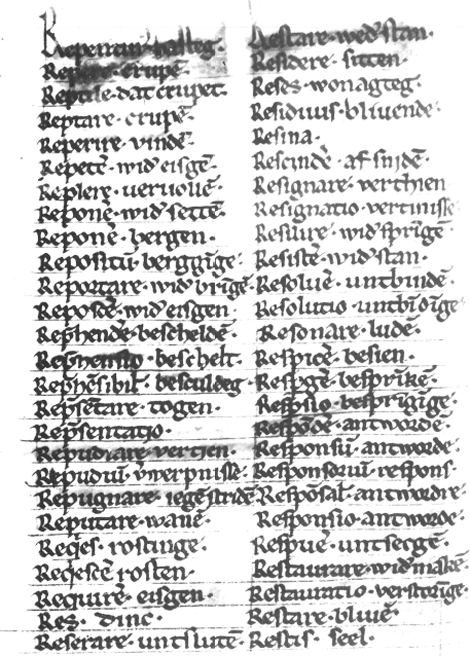 Repere · crupē
Reptile · dat crupet ·
Reptare · crupē ·
Reperire · vindē ·
Repetē · wid' eisgē ·
Replere · uervollē ·
Reponē · wid' settē ·
Reponē · bergen ·
Repositū · berggīge ·
Reportare · wid' brīgē ·
Reposcē · wid' eisgen ·
Rep̄hende · bescheldē ·
Rep̄hensio · beschelt ·
Rep̄hēsibil' · besculdeg ·
Rep̄sētare · togen ·
Rep̄sentatio ·
Repudiare · vertien ·
Repudiū · v̄werpnisse ·
Repugnare · iegē stridē
Reputare · wanē ·
Reqies · rostinge ·
Reqiescē rosten ·
Requirē · eisgen ·
Res · dinc ·
Reserare · untslutē ·
Restare · wed' stan ·
Residere · sitten ·
Reses · wonagteg ·
Residuus · bliuende ·
Resina ·
Rescindē · af snidē ·
Resignare · verthien
Resignatio · vertinisse
Resilire · wid' sprīgē ·
Resistē · wid' stan ·
Resoluē · untbindē ·
Resolutio · untbīdīge
Resonare · ludē ·
Respicē · besien ·
Respgē · besprīkē ·
Respsio · besprīgīge ·
Respōdē · antwordē ·
Responsū · antworde ·
Responsoriū · respons ·
Respōsal' · antwordre ·
Responsio · antworde ·
Respuē · untsecgē ·
Restaurare · wid makē ·
Restauratio · verstorīge ·
Restare · bliuē ·
Restis · seel ·